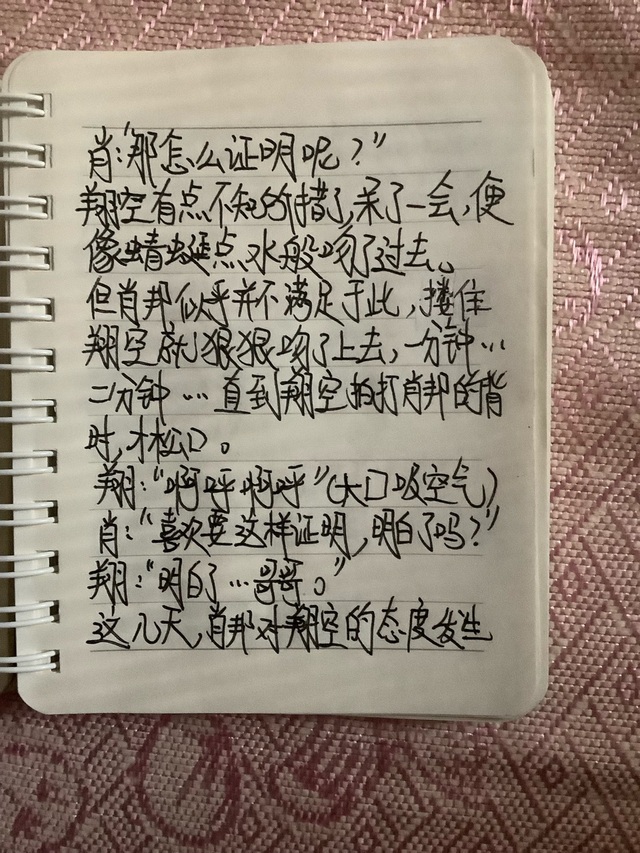 肖:“那怎么证明呢？”
翔空有点不知的措了,呆了一会,便
像蜻蜓点水般吻了过去。
但肖邦似乎并不满足于此,搂住
翔空就狠狠吻了上去,一分钟…
二分钟…直到翔空拍打肖邦的背
时,才松口。
翔:“啊呼啊呼”(大口吸空气)
肖:“喜欢要这样证明,明白了吗?”
翔:“明白了…哥哥。”
这几天,肖邦对翔空的态度发生